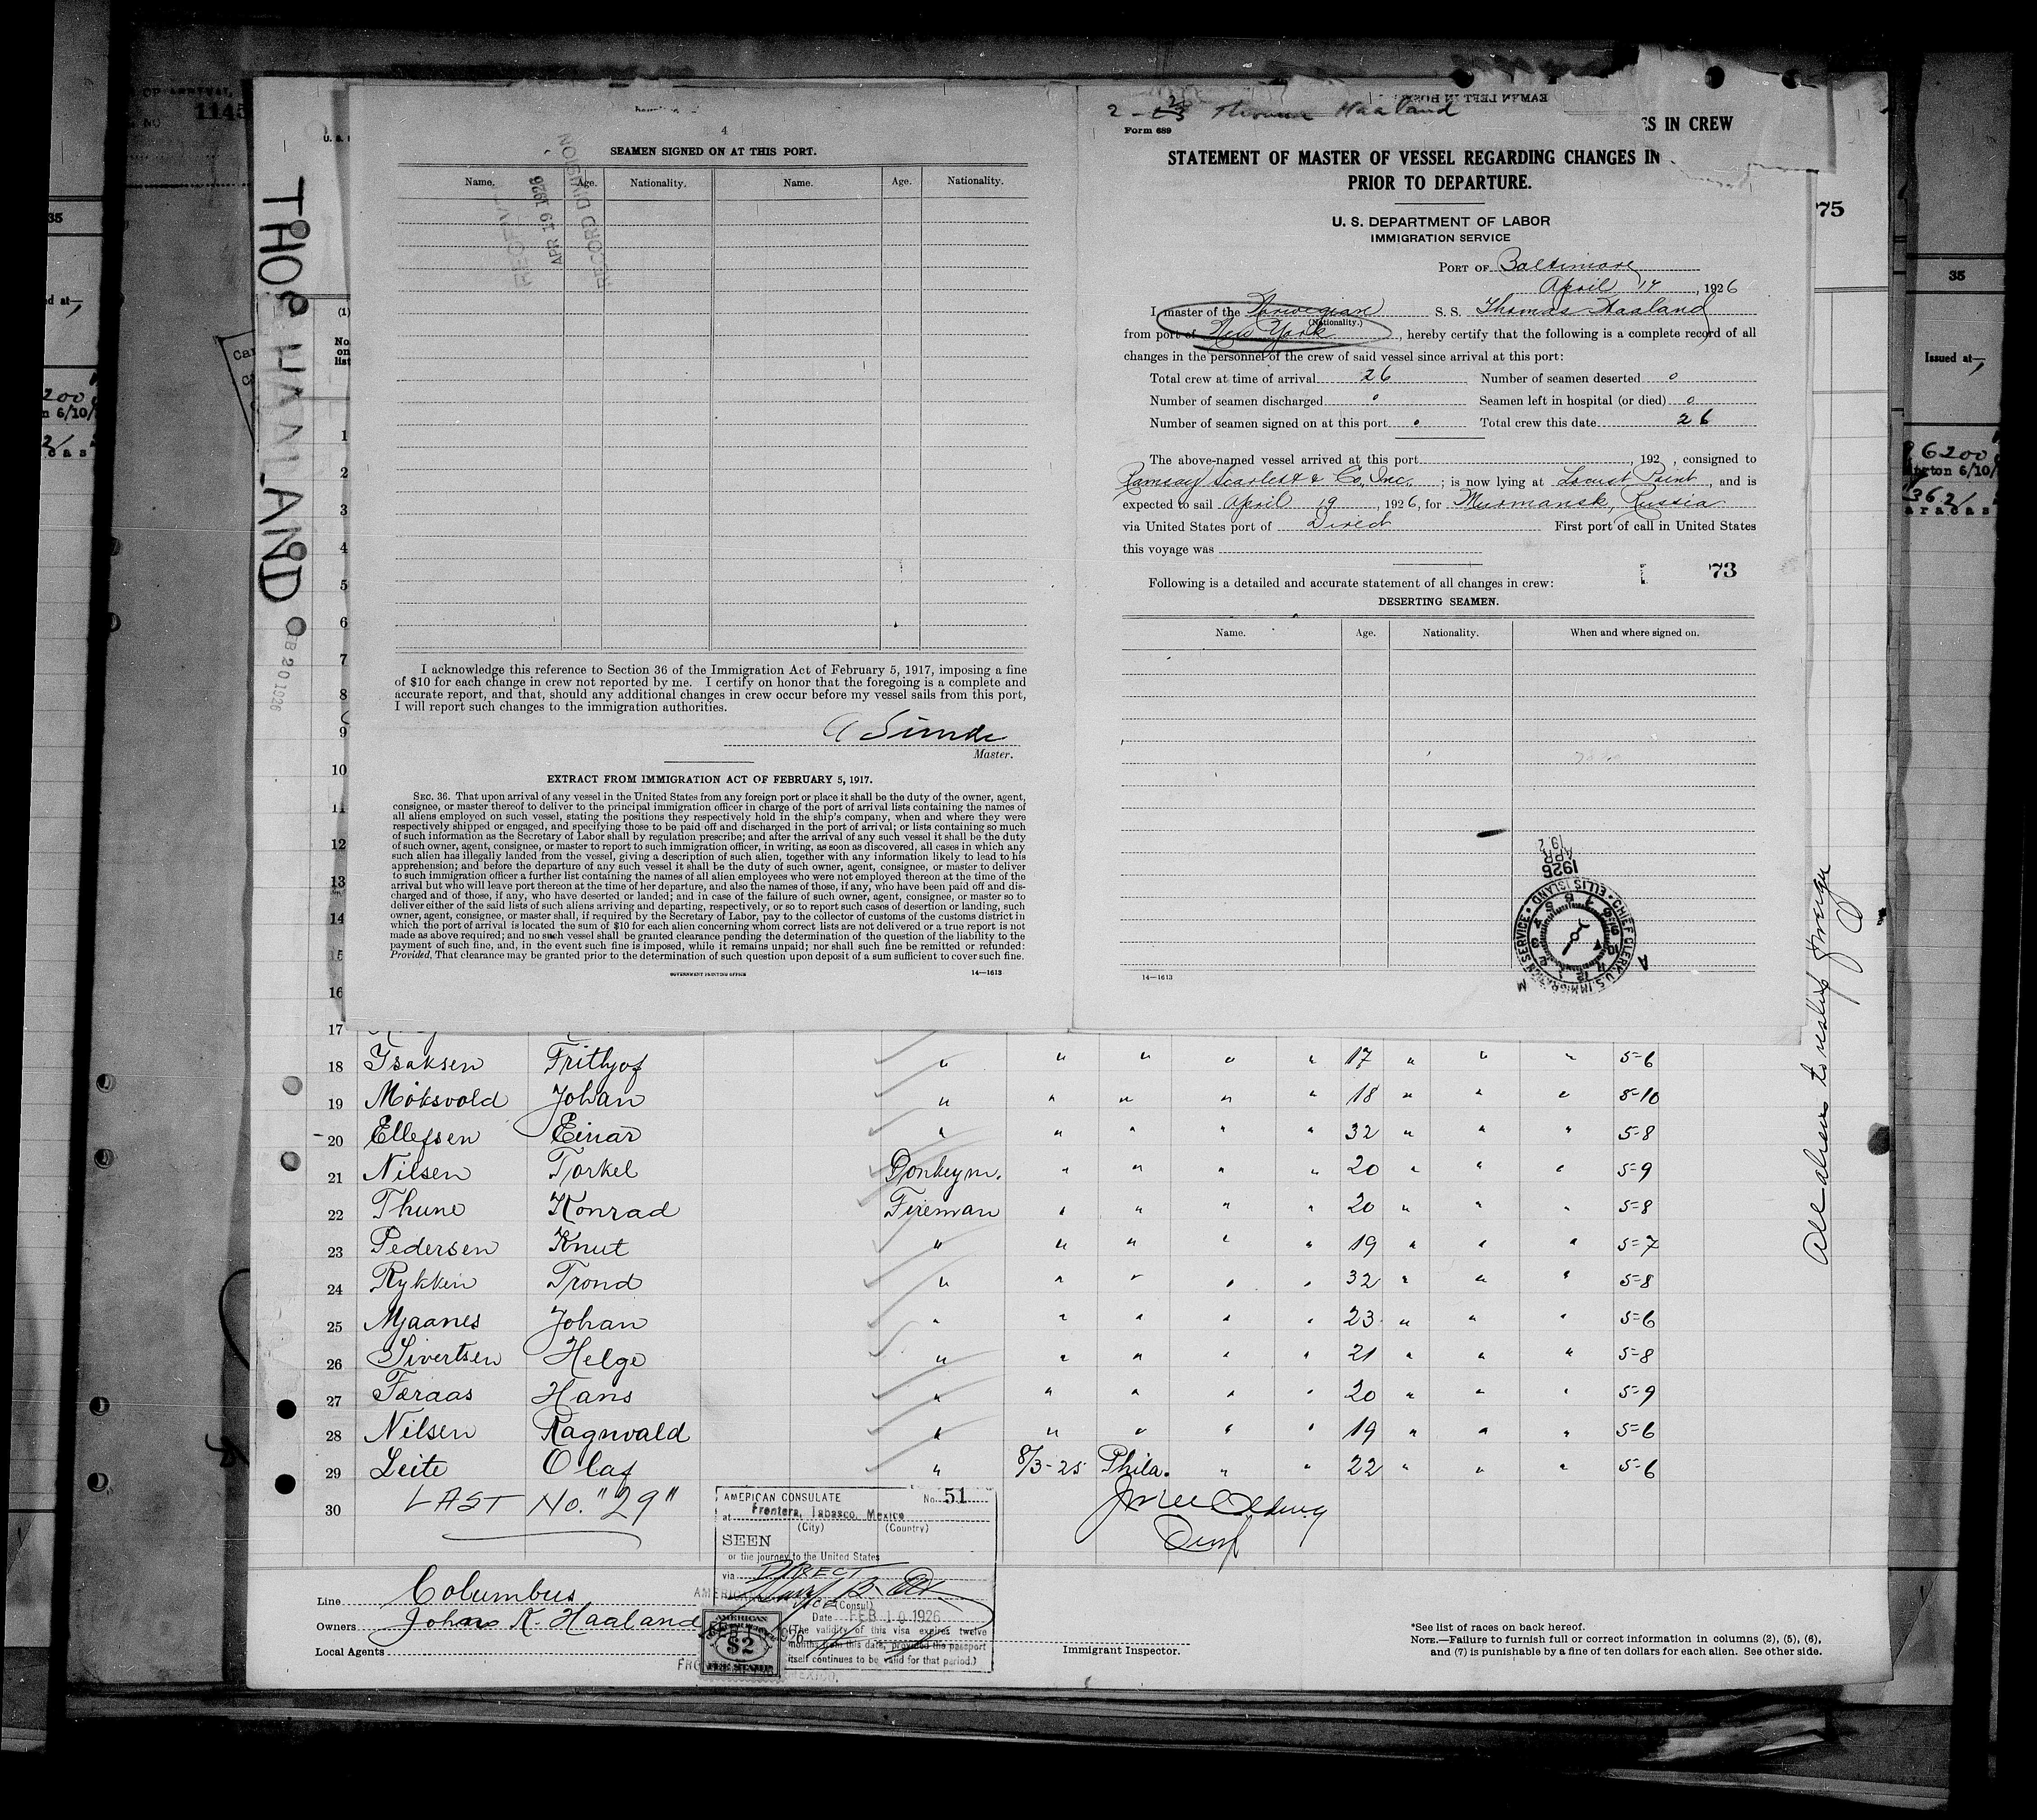 OF ARRIVAL,
1145
35
THOS HAALAND
FEB 20 1926
4
SEAMEN SIGNED ON AT THIS PORT.
Name. Age. Nationality. Name. Age. Nationality.
APR 19 1926
RECORD DIVISION
I acknowledge this reference to Section 36 of the Immigration Act of February 5, 1917, imposing a fine
of $10 for each change in crew not reported by me. I certify on honor that the foregoing is a complete and
accurate report, and that, should any additional changes in crew occur before my vessel sails from this port,
I will report such changes to the immigration authorities.
A Sunde
Master.
EXTRACT FROM IMMIGRATION ACT OF FEBRUARY 5, 1917.
SEC. 36. That upon arrival of any vessel in the United States from any foreign port or place it shall be the duty of the owner, agent,
consignee, or master thereof to deliver to the principal immigration officer in charge of the port of arrival lists containing the names of
all aliens employed on such vessel, stating the positions they respectively hold in the ship's company, when and where they were
respectively shipped or engaged, and specifying those to be paid off and discharged in the port of arrival; or lists containing so much
of such information as the Secretary of Labor shall by regulation prescribe; and after the arrival of any such vessel it shall be the duty
of such owner, agent, consignee, or master to report to such immigration officer, in writing, as soon as discovered, all cases in which any
such alien has illegally landed from the vessel, giving a description of such alien, together with any information likely to lead to his
apprehension; and before the departure of any such vessel it shall be the duty of such owner, agent, consignee, or master to deliver
to such immigration officer a further list containing the names of all alien employees who were not employed thereon at the time of the
arrival but who will leave port thereon at the time of her departure, and also the names of those, if any, who have been paid off and dis-
charged and of those, if any, who have deserted or landed; and in case of the failure of such owner, agent, consignee, or master so to
deliver either of the said lists of such aliens arriving and departing, respectively, or so to report such cases of desertion or landing, such
owner, agent, consignee, or master shall, if required by the Secretary of Labor, pay to the collector of customs of the customs district in
which the port of arrival is located the sum of $10 for each alien concerning whom correct lists are not delivered or a true report is not
made as above required; and no such vessel shall be granted clearance pending the determination of the question of the liability to the
payment of such fine, and, in the event such fine is imposed, while it remains unpaid; nor shall such fine be remitted or refunded:
Provided, That clearance may be granted prior to the determination of such question upon deposit of a sum sufficient to cover such fine.
GOVERNMENT PRINTING OFFICE 14—1613
Thomas Haaland
Form 689
ES IN CREW
STATEMENT OF MASTER OF VESSEL REGARDING CHANGES IN
PRIOR TO DEPARTURE.
U. S. DEPARTMENT OF LABOR
IMMIGRATION SERVICE
PORT OF Baltimore
April 17, 1926
I master of the Norwegian S. S. Thomas Haaland
(Nationality.)
from port of New York, hereby certify that the following is a complete record of all
changes in the personnel of the crew of said vessel since arrival at this port:
Total crew at time of arrival 26 Number of seamen deserted 0
Number of seamen discharged 0 Seamen left in hospital (or died) 0
Number of seamen signed on at this port 0 Total crew this date 26
The above-named vessel arrived at this port , 192 , consigned to
Ramsay Scarlett & Co, Inc. ; is now lying at Locust Point, and is
expected to sail April 19, 1926, for Murmansk, Russia
via United States port of Direct First port of call in United States
this voyage was
73
Following is a detailed and accurate statement of all changes in crew:
DESERTING SEAMEN.
Name. Age. Nationality. When and where signed on.
1926
APR
CHIEF CLERK U.S. IMMIGRATION SERVICE • ELLIS ISLAND
14—1613
75
35
Issued at—
All aliens to reship foreign
1
2
3
4
5
6
7
8
9
10
11
12
13
14
15
16
17
18 Isaksen Frithjof " " " " " 17 " " " 5-6
19 Moksvold Johan " " " " " 18 " " " 5-10
20 Ellefsen Einar " " " " " 32 " " " 5-8
21 Nilsen Torkel Donkeym. " " " " 20 " " " 5-9
22 Thune Konrad Fireman " " " " 20 " " " 5-8
23 Pedersen Knut " " " " " 19 " " " 5-7
24 Rykken Trond " " " " " 32 " " " 5-8
25 Mjaanes Johan " " " " " 23 " " " 5-6
26 Sivertsen Helge " " " " " 21 " " " 5-8
27 Færaas Hans " " " " " 20 " " " 5-9
28 Nilsen Ragnvald " " " " " 19 " " " 5-6
29 Leite Olaf " 8/3-25 Phila. " " 22 " " " 5-6
30 LAST No. "29"
AMERICAN CONSULATE No. 51
at Frontera, Tabasco, Mexico
(City) (Country)
SEEN
or the journey to the United States
via DIRECT
Vice (Consul)
Date FEB 10 1926
(The validity of this visa expires twelve
months from this date, provided the passport
itself continues to be valid for that period.)
AMERICAN
$2
FEE STAMP
Line Columbus
Owners Johns K. Haaland
Local Agents
Immigrant Inspector.
*See list of races on back hereof.
NOTE.—Failure to furnish full or correct information in columns (2), (5), (6),
and (7) is punishable by a fine of ten dollars for each alien. See other side.